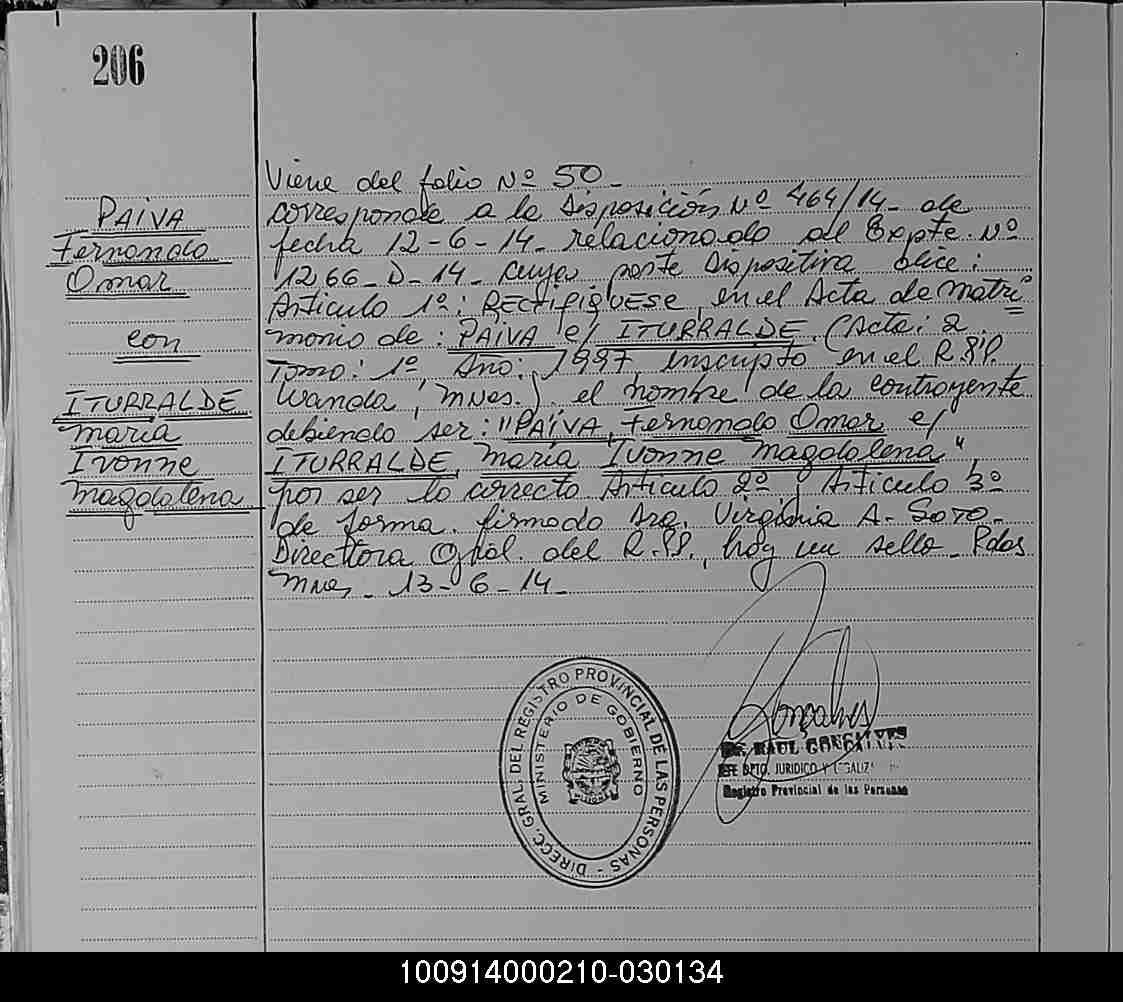 206
PAIVA
Fernando
Omar
con
ITURRALDE
María
Ivonne
Magdalena
Viene del folio Nº 50-
corresponde a la Disposición Nº 464/14- de
fecha 12-6-14- relacionado al Expte. Nº
1266-D-14- cuya parte dispositiva dice:
Artículo 1º: RECTIFIQUESE, en el Acta de Matri
monio de: PAIVA c/ ITURRALDE. (Acta: 2
Tomo: 1º, Año: 1997, inscripto en el R.P.P.
Wanda, Mnes.). el nombre de la contrayente
debiendo ser: "PAIVA, Fernando Omar c/
ITURRALDE, María Ivonne Magdalena",
por ser lo correcto Artículo 2º y Artículo 3º
de forma. firmado Dra. Virginia A. SOTO-
Directora Gral. del R.P.P., hay un sello- Pdas
Mnes- 13-6-14-
DIRECC. GRAL. DEL REGISTRO PROVINCIAL DE LAS PERSONAS -
MINISTERIO DE GOBIERNO
Gonçalves
DR. RAUL GONÇALVES
JEFE DPTO. JURIDICO Y LEGALIZ
Registro Provincial de las Personas
100914000210-030134